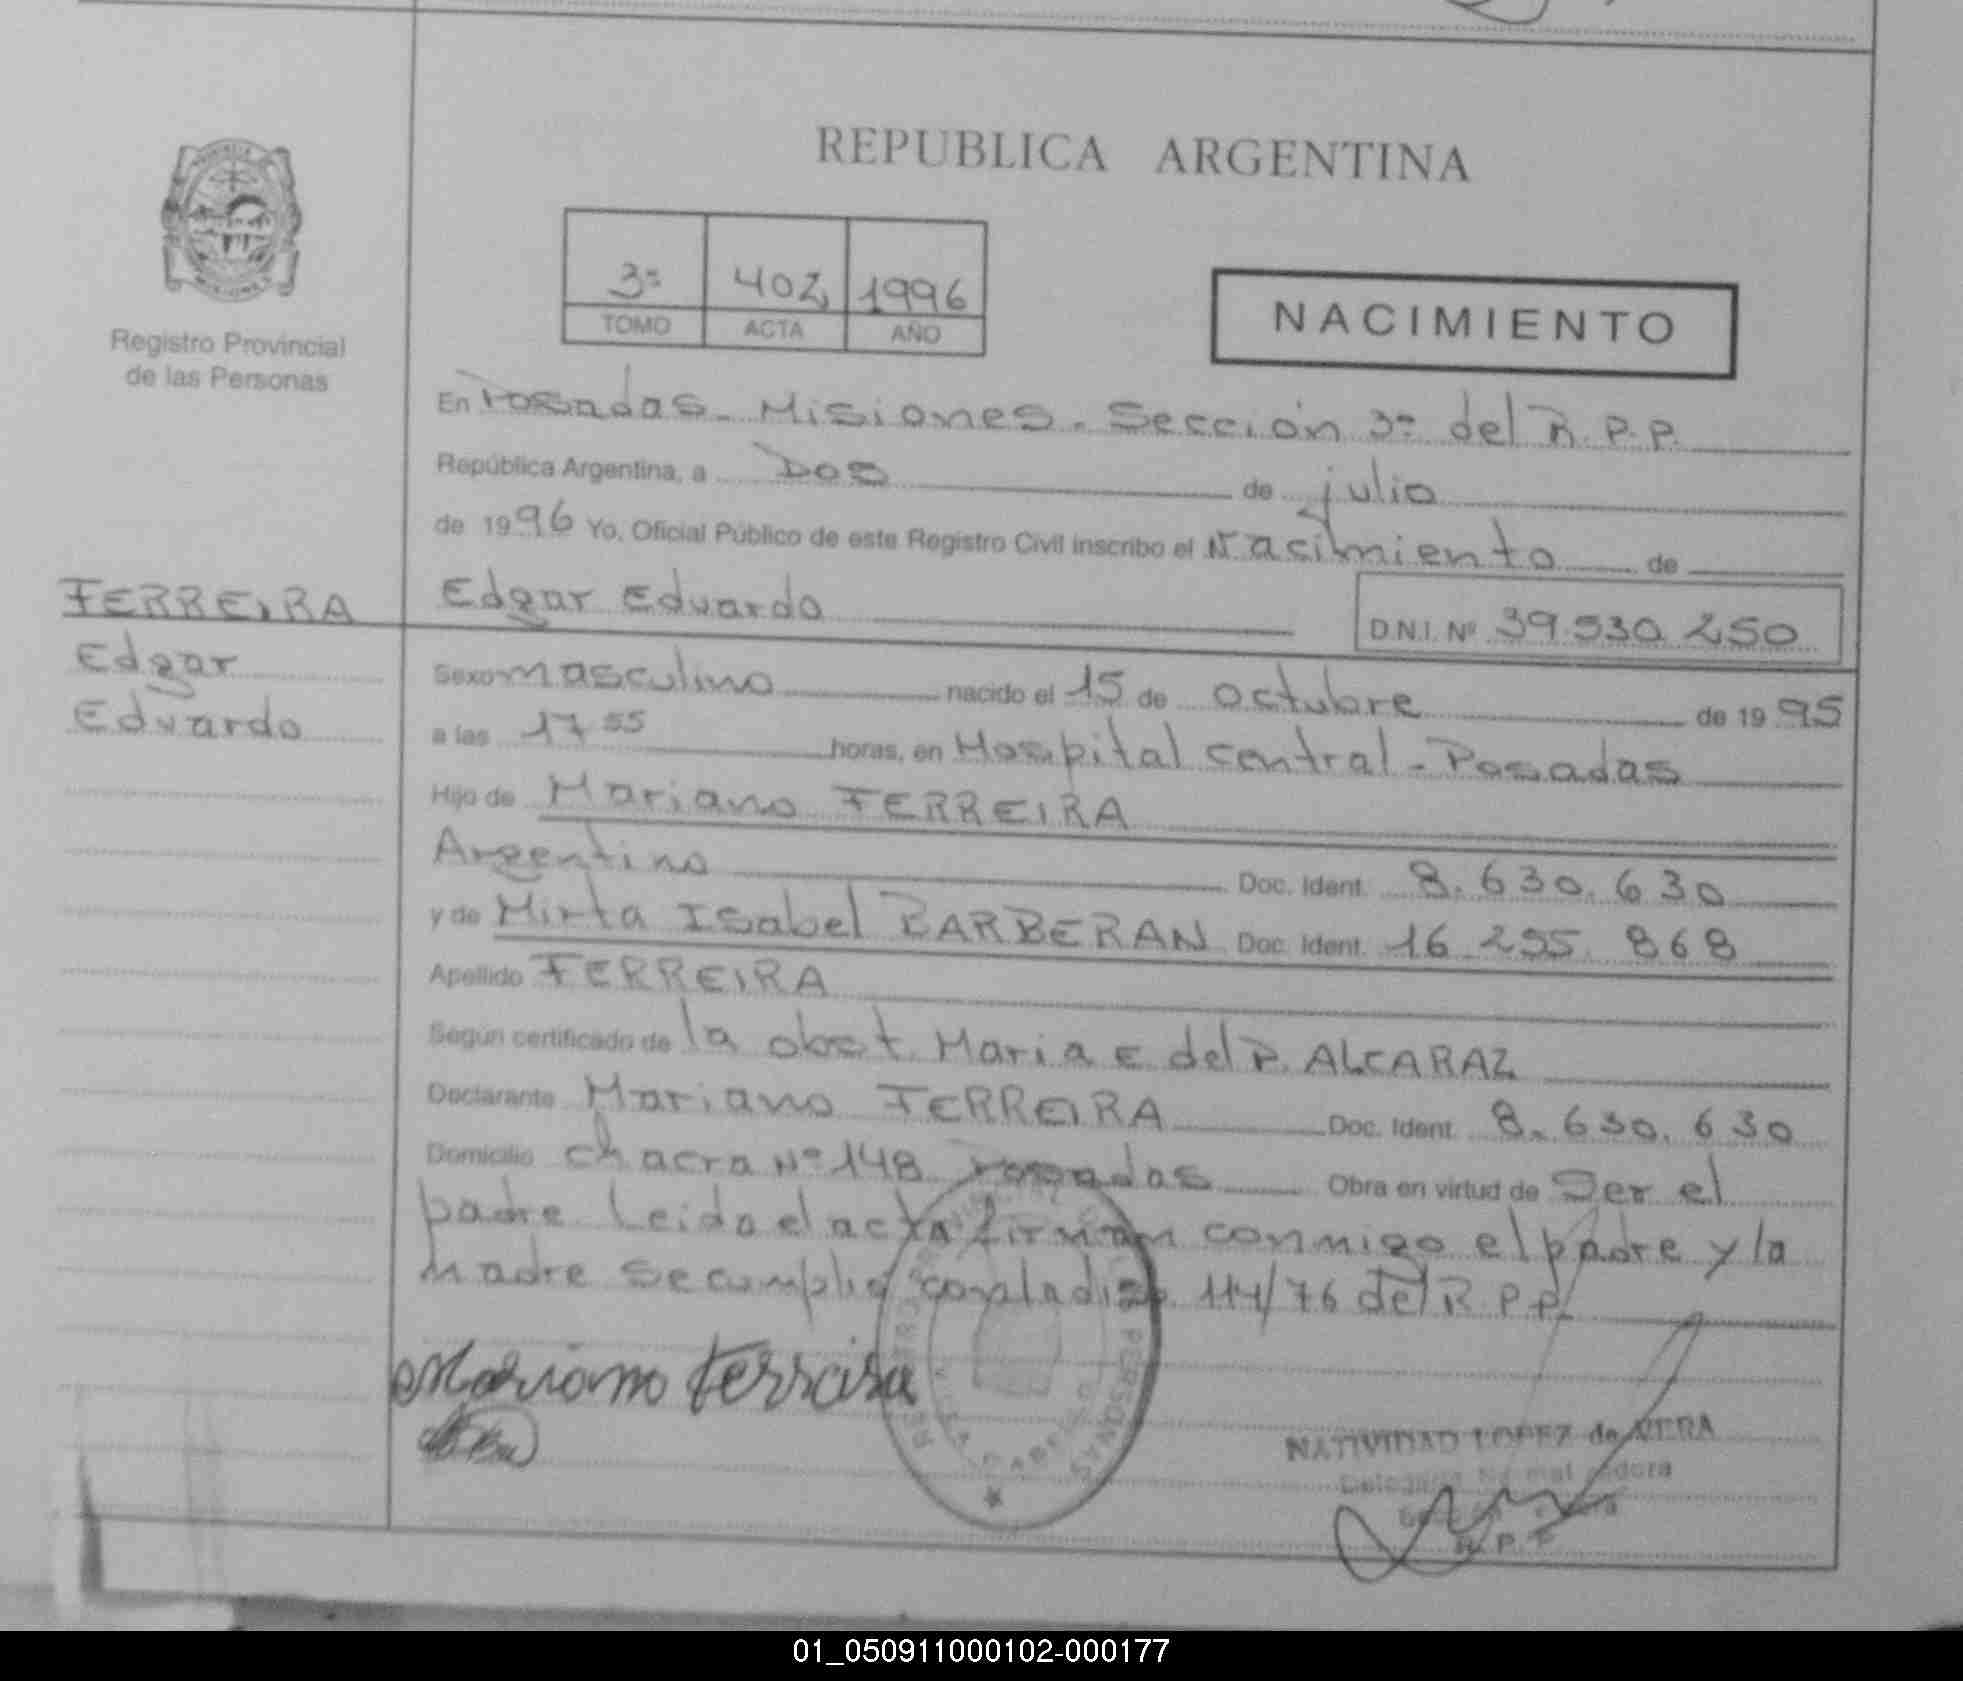 REPUBLICA ARGENTINA
Registro Provincial
de las Personas
3º 402 1996
TOMO ACTA AÑO
NACIMIENTO
En Posadas - Misiones. Sección 3º del R. P. P.
República Argentina, a Dos de julio
de 1996 Yo, Oficial Público de este Registro Civil inscribo el Nacimiento de
FERREIRA
Edgar
Eduardo
Edgar Eduardo D.N.I. Nº 39.530.250
Sexo masculino nacido el 15 de octubre de 1995
a las 17 55 horas, en Hospital Central - Posadas
Hijo de Mariano FERREIRA
Argentino Doc. Ident. 8.630.630
y de Mirta Isabel BARBERAN Doc. Ident. 16.255.868
Apellido FERREIRA
Según certificado de la obst. Maria E del P. ALCARAZ
Declarante Mariano FERREIRA Doc. Ident. 8.630.630
Domicilio chacra Nº 148 Posadas Obra en virtud de Ser el
padre Leida el acta firman conmigo el padre y la
madre se cumplió con la dis. 114/76 del R. P. P.
Mariano Ferreira
PERSONAS
NATIVIDAD LOPEZ de VERA
R. P. P.
01_050911000102-000177